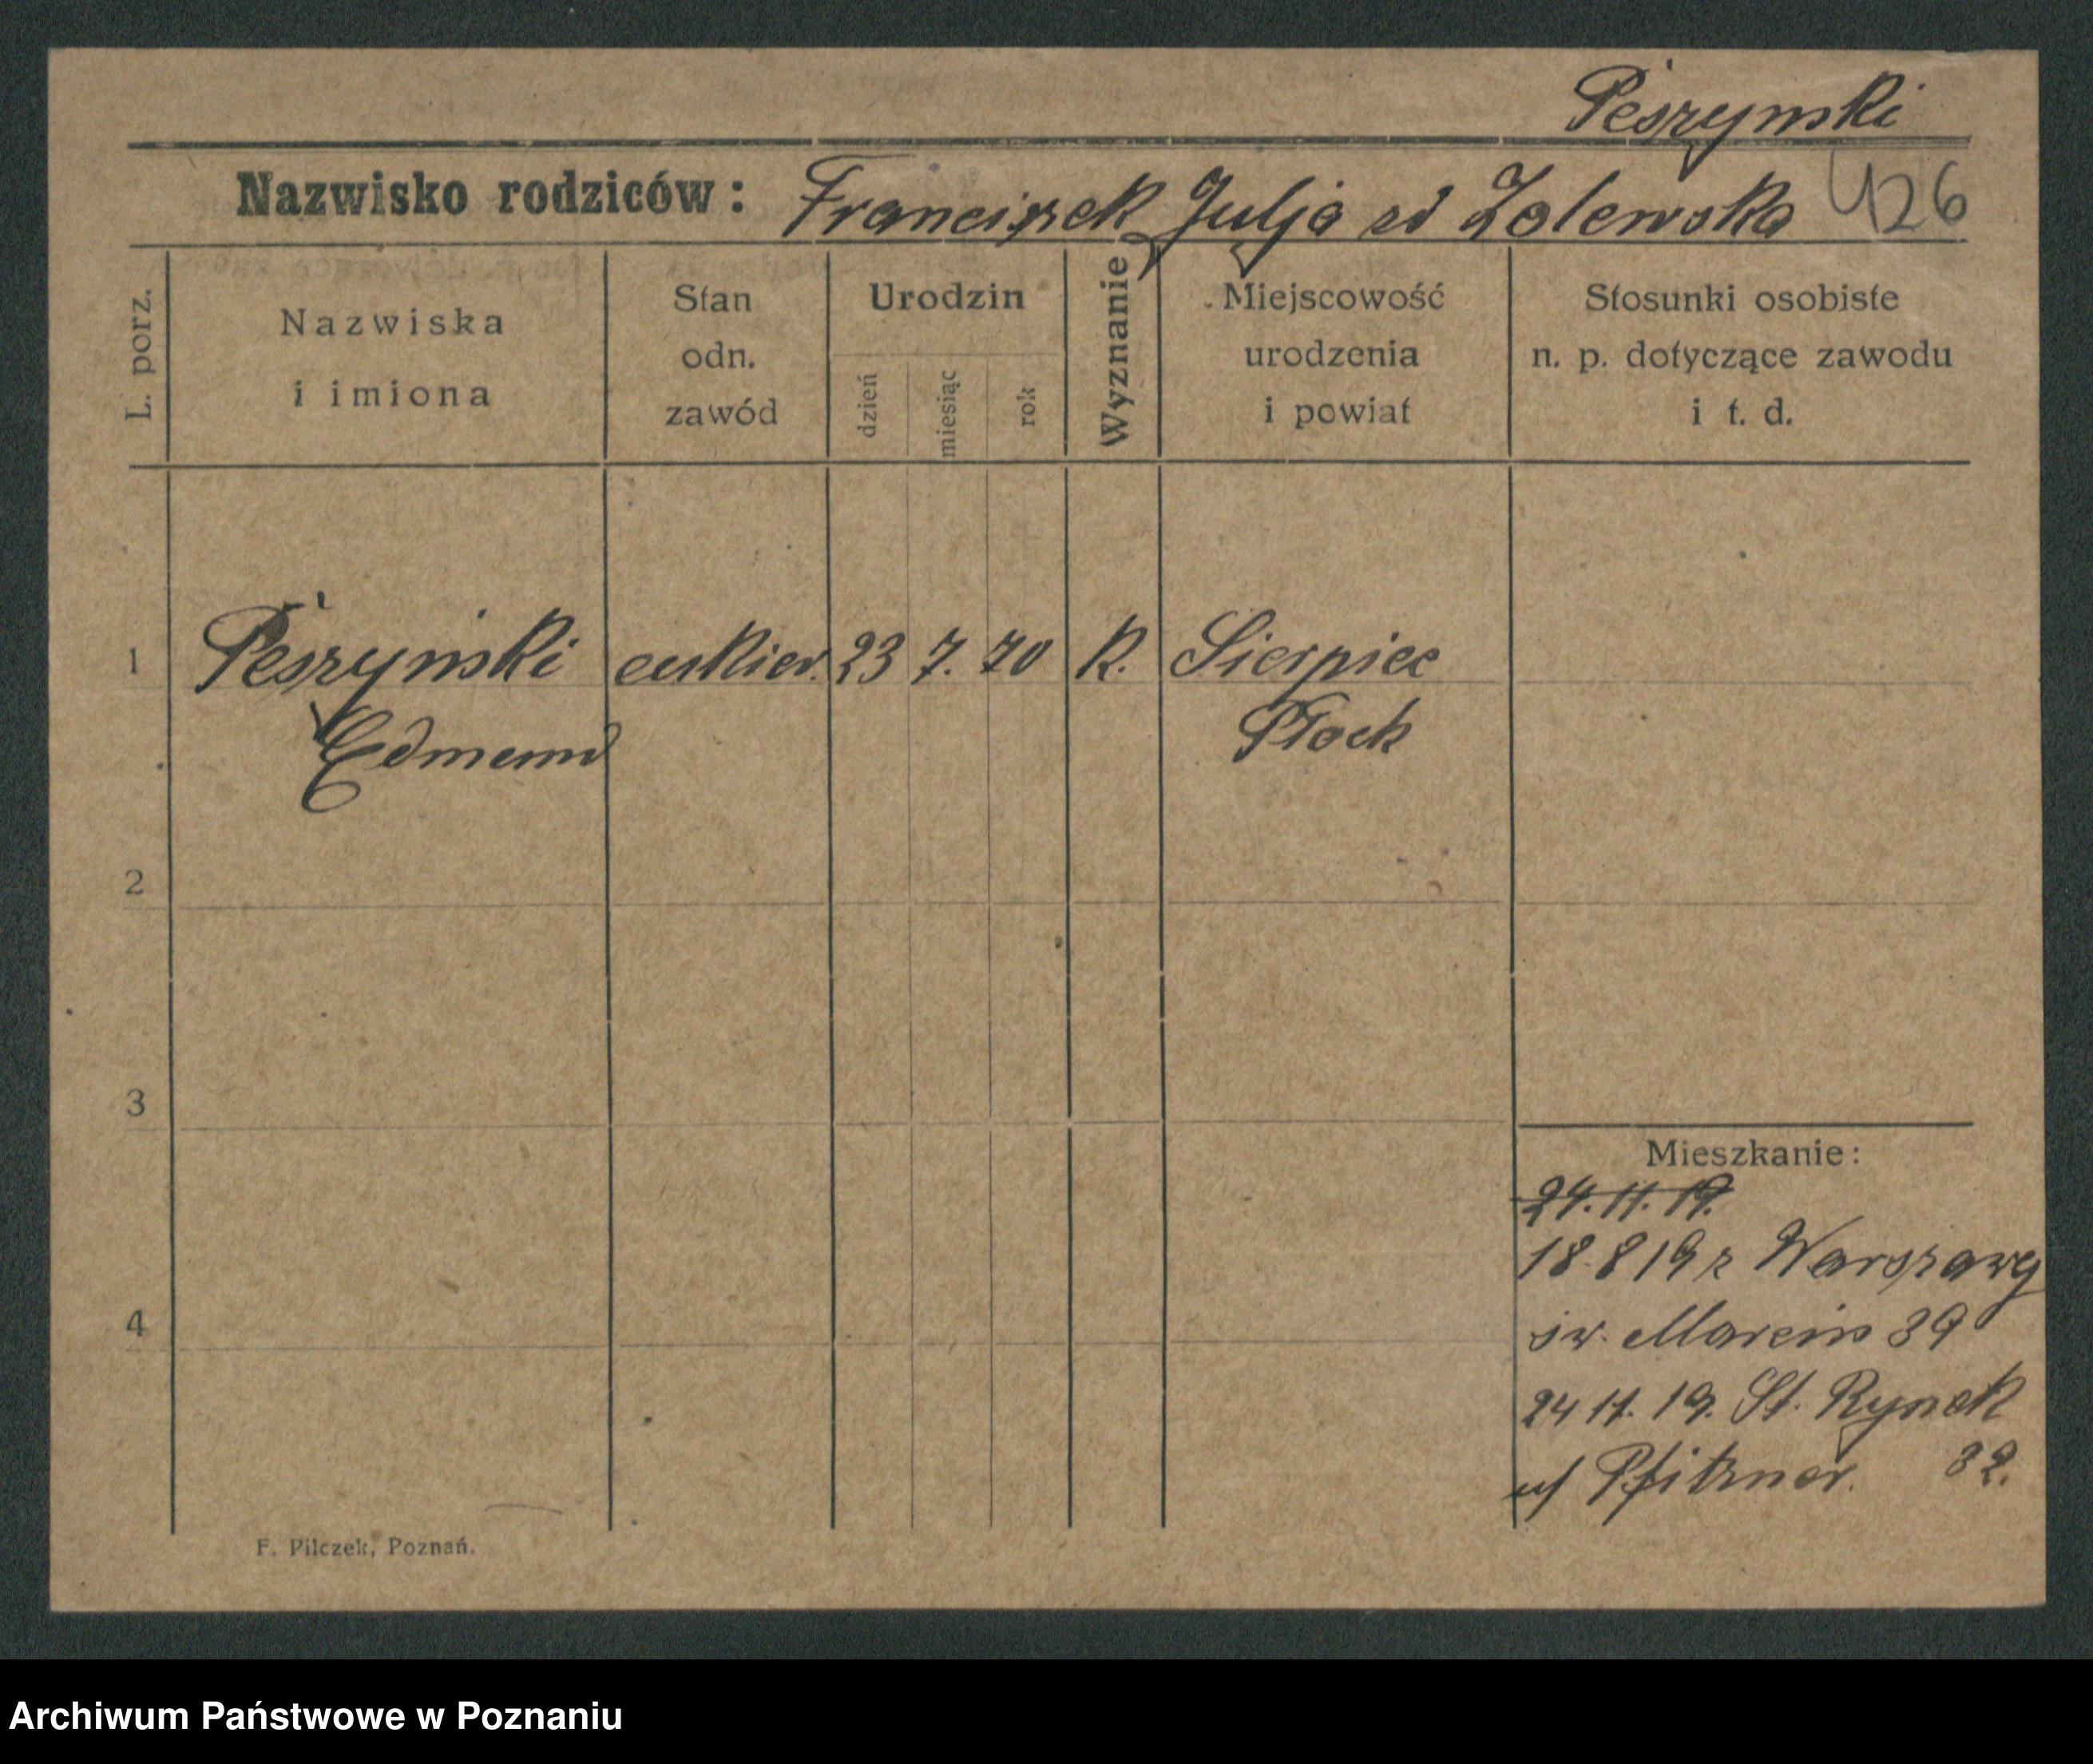 Peszynski
Nazwisko rodziców: Franciszek Julja zd Zalewska 426
L. porz.
Nazwiska i imiona
Stan odn. zawód
Urodzin
dzień miesiąc rok
Wyznanie
Miejscowość urodzenia i powiat
Stosunki osobiste n. p. dotyczące zawodu i t. d.
1 Peszyński cukier. 23 7. 70 K. Sierpiec
Edmund Płock
2
3
Mieszkanie:
24. 11. 19.
18. 8 19 z Warszawy
4
św. Marcin 39
24 11. 19. St. Rynek
u/ Pfitzner. 32.
F. Pilczek, Poznań.
Archiwum Państwowe w Poznaniu